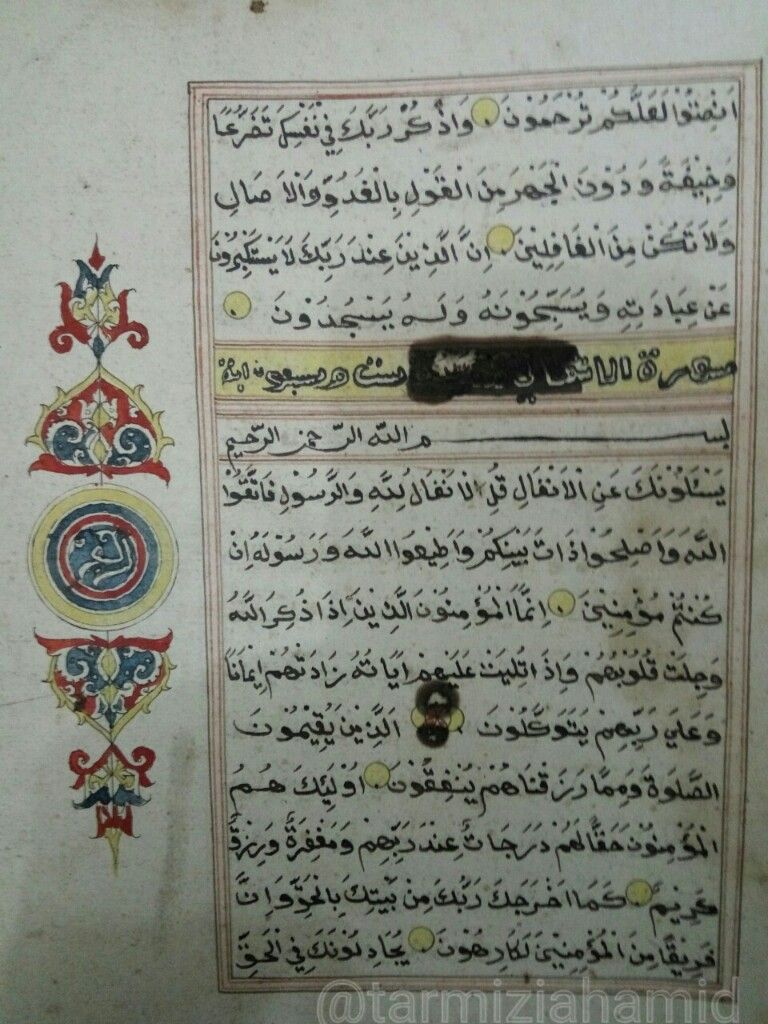 اَنْصِتُوا لَعَلَّكُمْ تُرْحَمُوْنَ وَاذْكُرْ رَبَّكَ فِيْ نَفْسِكَ تَضَرُّعًا
وَخِيْفَةً وَدُوْنَ الْجَهْرِ مِنَ الْقَوْلِ بِالْغُدُوِّ وَالْاٰصَالِ
وَلَا تَكُنْ مِنَ الْغَافِلِيْنَ اِنَّ الَّذِيْنَ عِنْدَ رَبِّكَ لَا يَسْتَكْبِرُوْنَ
عَنْ عِبَادَتِهِ وَيُسَبِّحُوْنَهُ وَلَهُ يَسْجُدُوْنَ
سورة الانفال ست وسبعون اية
بسم الله الرّحمن الرّحيم
يَسْئَلُوْنَكَ عَنِ الْاَنْفَالِ قُلِ الْاَنْفَالُ لِلّٰهِ وَالرَّسُوْلِ فَاتَّقُوْا
اللّٰهَ وَاَصْلِحُوْا ذَاتَ بَيْنِكُمْ وَاَطِيْعُوا اللّٰهَ وَرَسُوْلَهُ اِنْ
كُنْتُمْ مُؤْمِنِيْنَ اِنَّمَا الْمُؤْمِنُوْنَ الَّذِيْنَ اِذَا ذُكِرَ اللّٰهُ
وَجِلَتْ قُلُوْبُهُمْ وَاِذَا تُلِيَتْ عَلَيْهِمْ اٰيَاتُهُ زَادَتْهُمْ اِيْمَانًا
وَعَلَى رَبِّهِمْ يَتَوَكَّلُوْنَ الَّذِيْنَ يُقِيْمُوْنَ
الصَّلٰوةَ وَمِمَّا رَزَقْنَاهُمْ يُنْفِقُوْنَ اُولٰئِكَ هُمُ
الْمُؤْمِنُوْنَ حَقًّا لَهُمْ دَرَجَاتٌ عِنْدَ رَبِّهِمْ وَمَغْفِرَةٌ وَرِزْقٌ
كَرِيْمٌ كَمَا اَخْرَجَكَ رَبُّكَ مِنْ بَيْتِكَ بِالْحَقِّ وَاِنَّ
فَرِيْقًا مِنَ الْمُؤْمِنِيْنَ لَكَارِهُوْنَ يُجَادِلُوْنَكَ فِي الْحَقِّ
@tarmiziahamid